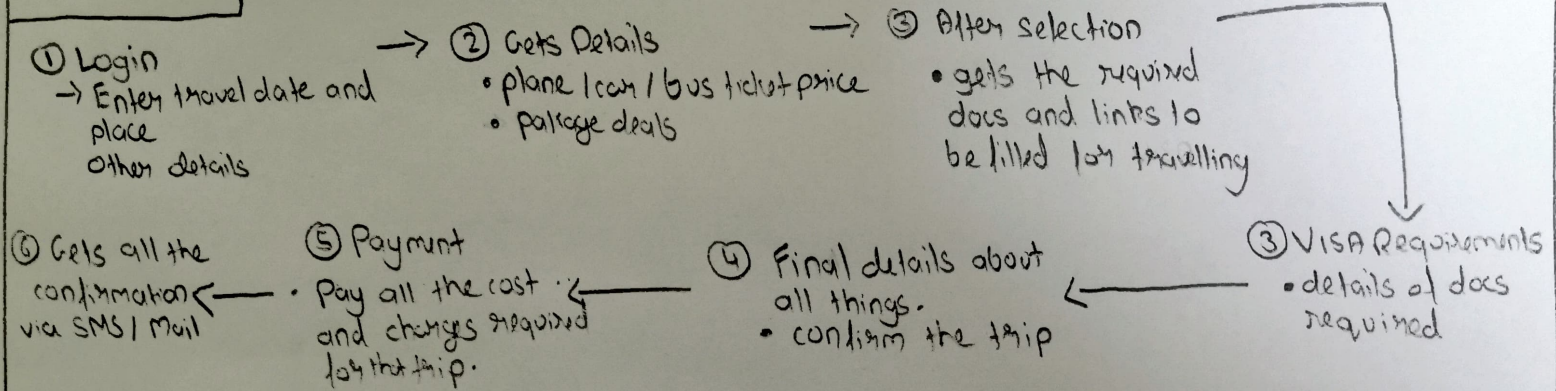 ① Login
→ Enter travel date and
place
Other details
→ ② Gets Details
• plane / car / bus ticket price
• package deals
→ ③ After selection
• gets the required
docs and links to
be filled for travelling
③ VISA Requirements
• details of docs
required
④ Final details about
all things.
• confirm the trip
⑤ Payment
• Pay all the cost
and charges required
for that trip.
⑥ Gets all the
confirmation
via SMS / Mail